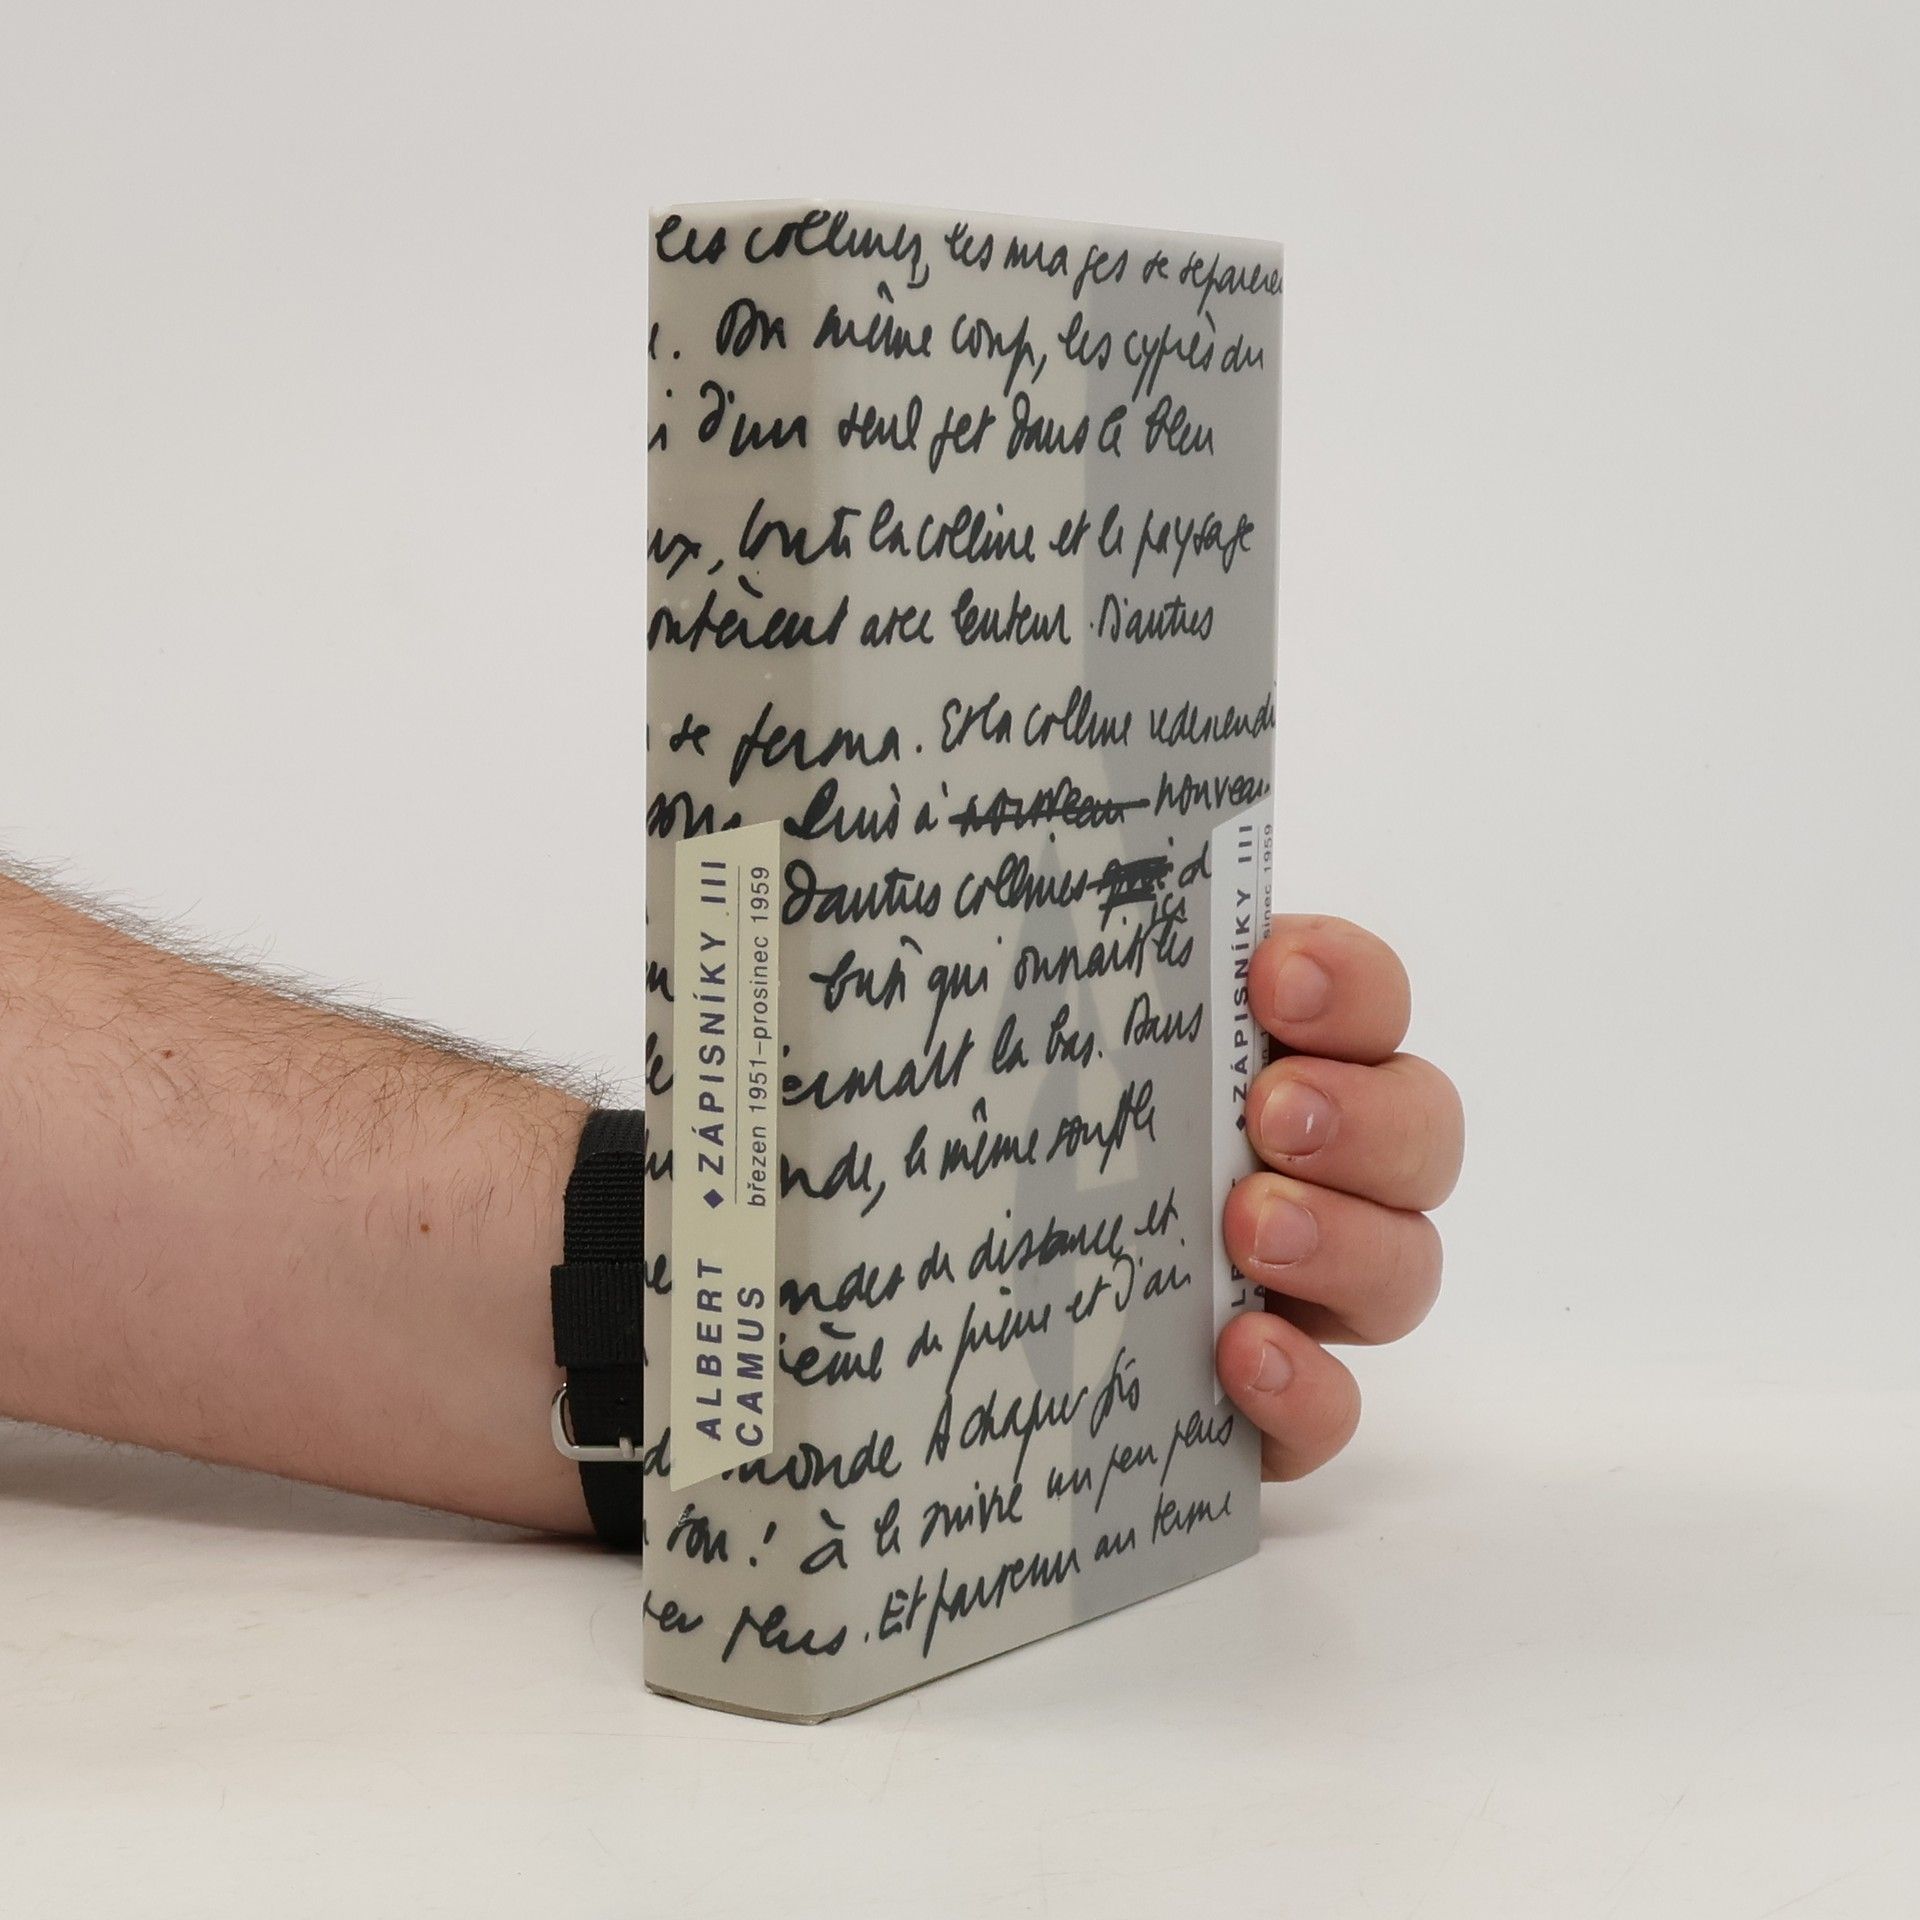 les collines, les nuages se séparere
. D'un même coup, les cyprès du
i d'un seul jet dans le bleu
ux, toute la colline et le paysage
ontèrent avec lenteur. D'autres
se ferma. Et la colline redescendi
sons. Puis à nouveau nouveau
D'autres collines qui d
qui les
ermait là bas. Dans
nde, le même souffle
andes de distance et
ième de pierre et d'air
monde A chaque fois
son! à le suivre un peu plus
peu plus. Et parvenu au terme
ALBERT CAMUS
◆ ZÁPISNÍKY III
březen 1951–prosinec 1959
◆ ZÁPISNÍKY III
sinec 1959